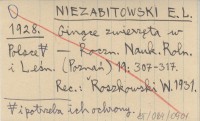 NIEZABITOWSKI E. L.
1928. Ginące zwierzęta w
Polsce # — Roczn. Nauk. Roln.
i Leśn. (Poznań) 19: 307-317.
Rec.: Roszkowski W. 1931.
# i potrzeba ich ochrony.